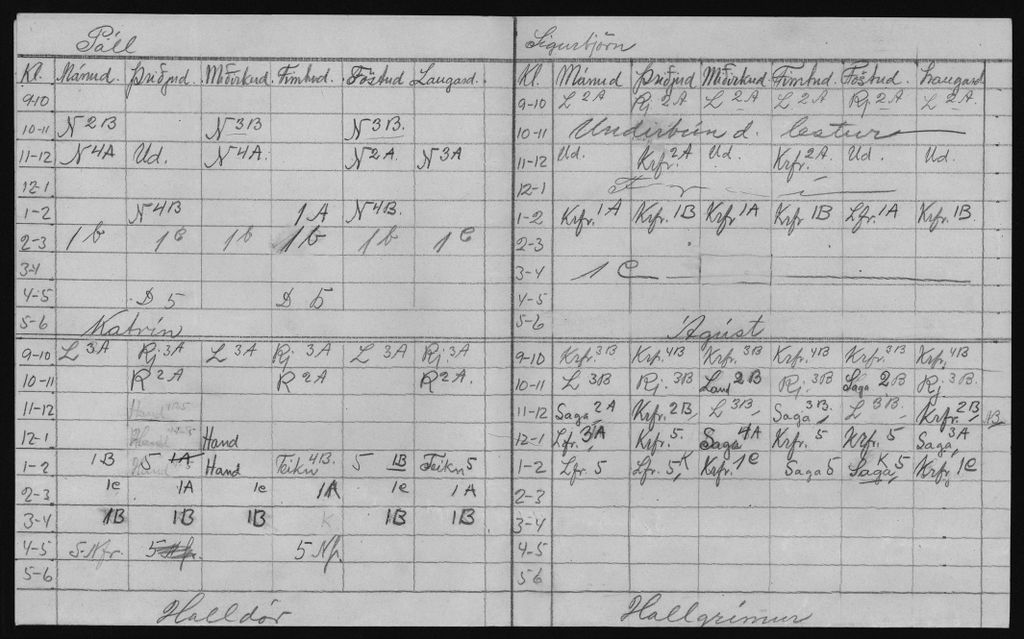 Páll
Kl. Mánud. Þriðjud Miðvikud. Fimtud. Föstud Laugard.
9-10
10-11 N 2B N 3B N 3B.
11-12 N 4A Ud. N 4A. N 2A. N 3A
12-1
1-2 N 4B 1A N 4B.
2-3 1b 1C 1b 1b 1b 1C
3-4
4-5 D 5 D 5
5-6
Katrín
9-10 L 3A Rj. 3A L 3A Rj. 3A L 3A Rj. 3A
10-11 R 2A R 2A R 2A.
11-12 Hand
12-1 Hand Hand
1-2 1B 5 1A Hand Teikn 4B. 5 1B Teikn 5
2-3 1c 1A 1c 1A 1c 1A
3-4 1B 1B 1B K 1B 1B
4-5 5 Nfr. 5 Nfr. 5 Nfr.
5-6
Halldór
Sigurbjörn
Kl. Mánud Þriðjud Miðvikud. Fimtud Föstud. Laugard
9-10 L 2A Rj 2A L 2A L 2A Rj. 2A L 2A.
10-11 Undirbún d. lestur
11-12 Ud. Krfr. 2A Ud. Krfr. 2A Ud. Ud.
12-1 F r í
1-2 Krfr. 1A Krfr. 1B Krfr. 1A Krfr 1B Lfr. 1A Krfr. 1B.
2-3
3-4 1 C
4-5
5-6
Ágúst
9-10 Krfr. 3B Krfr. 4B Krfr. 3B Krfr. 4B Krfr. 3B Krfr. 4B
10-11 L 3B Rj. 3B Land 2B Rj. 3B Saga 2B Rj. 3B.
11-12 Saga 2A Krfr. 2B L 3B Saga 3B. L 3B Krfr. 2B 1B
12-1 Lfr. 3A Krfr. 5. Saga 4A Krfr. 5 Krfr. 5 Saga 3A
1-2 Lfr. 5 Lfr. 5 K Krfr. 1C Saga 5 Saga K 5 Krfr 1C
2-3
3-4
4-5
5 6
Hallgrímur